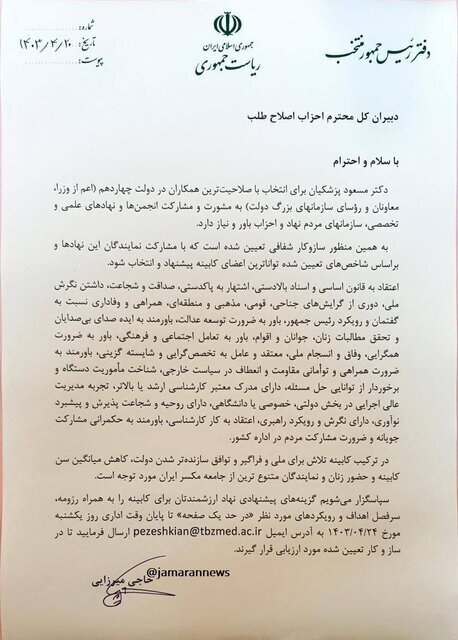 شماره:
تاریخ: ۱۴۰۳/۴/۲۰
پیوست:
جمهوری اسلامی ایران
ریاست جمهوری
دفتر رئیس جمهور منتخب
دبیران کل محترم احزاب اصلاح طلب
با سلام و احترام
دکتر مسعود پزشکیان برای انتخاب با صلاحیت‌ترین همکاران در دولت چهاردهم (اعم از وزرا،
معاونان و رؤسای سازمانهای بزرگ دولت) به مشورت و مشارکت انجمن‌ها و نهادهای علمی و
تخصصی، سازمانهای مردم نهاد و احزاب باور و نیاز دارد.
به همین منظور سازوکار شفافی تعیین شده است که با مشارکت نمایندگان این نهادها و
براساس شاخص‌های تعیین شده تواناترین اعضای کابینه پیشنهاد و انتخاب شود.
اعتقاد به قانون اساسی و اسناد بالادستی، اشتهار به پاکدستی، صداقت و شجاعت، داشتن نگرش
ملی، دوری از گرایش‌های جناحی، قومی، مذهبی و منطقه‌ای، همراهی و وفاداری نسبت به
گفتمان و رویکرد رئیس جمهور، باور به ضرورت توسعه عدالت، باورمند به ایده صدای بی‌صدایان
و تحقق مطالبات زنان، جوانان و اقوام، باور به تعامل اجتماعی و فرهنگی، باور به ضرورت
همگرایی، وفاق و انسجام ملی، معتقد و عامل به تخصص‌گرایی و شایسته گزینی، باورمند به
ضرورت همراهی و توأمانی مقاومت و انعطاف در سیاست خارجی، شناخت مأموریت دستگاه و
برخوردار از توانایی حل مسئله، دارای مدرک معتبر کارشناسی ارشد یا بالاتر، تجربه مدیریت
عالی اجرایی در بخش دولتی، خصوصی یا دانشگاهی، دارای روحیه و شجاعت پذیرش و پیشبرد
نوآوری، دارای نگرش و رویکرد راهبری، اعتقاد به کار کارشناسی، باورمند به حکمرانی مشارکت
جویانه و ضرورت مشارکت مردم در اداره کشور.
در ترکیب کابینه تلاش برای ملی و فراگیر و توافق سازنده‌تر شدن دولت، کاهش میانگین سن
کابینه و حضور زنان و نمایندگان متنوع ترین از جامعه مکسر ایران مورد توجه است.
سپاسگزار می‌شویم گزینه‌های پیشنهادی نهاد ارزشمندتان برای کابینه را به همراه رزومه،
سرفصل اهداف و رویکردهای مورد نظر «در حد یک صفحه» تا پایان وقت اداری روز یکشنبه
مورخ ۱۴۰۳/۰۴/۲۴ به آدرس ایمیل pezeshkian@tbzmed.ac.ir ارسال فرمایید تا در
ساز و کار تعیین شده مورد ارزیابی قرار گیرند.
@jamarannews
حاجی میرزایی